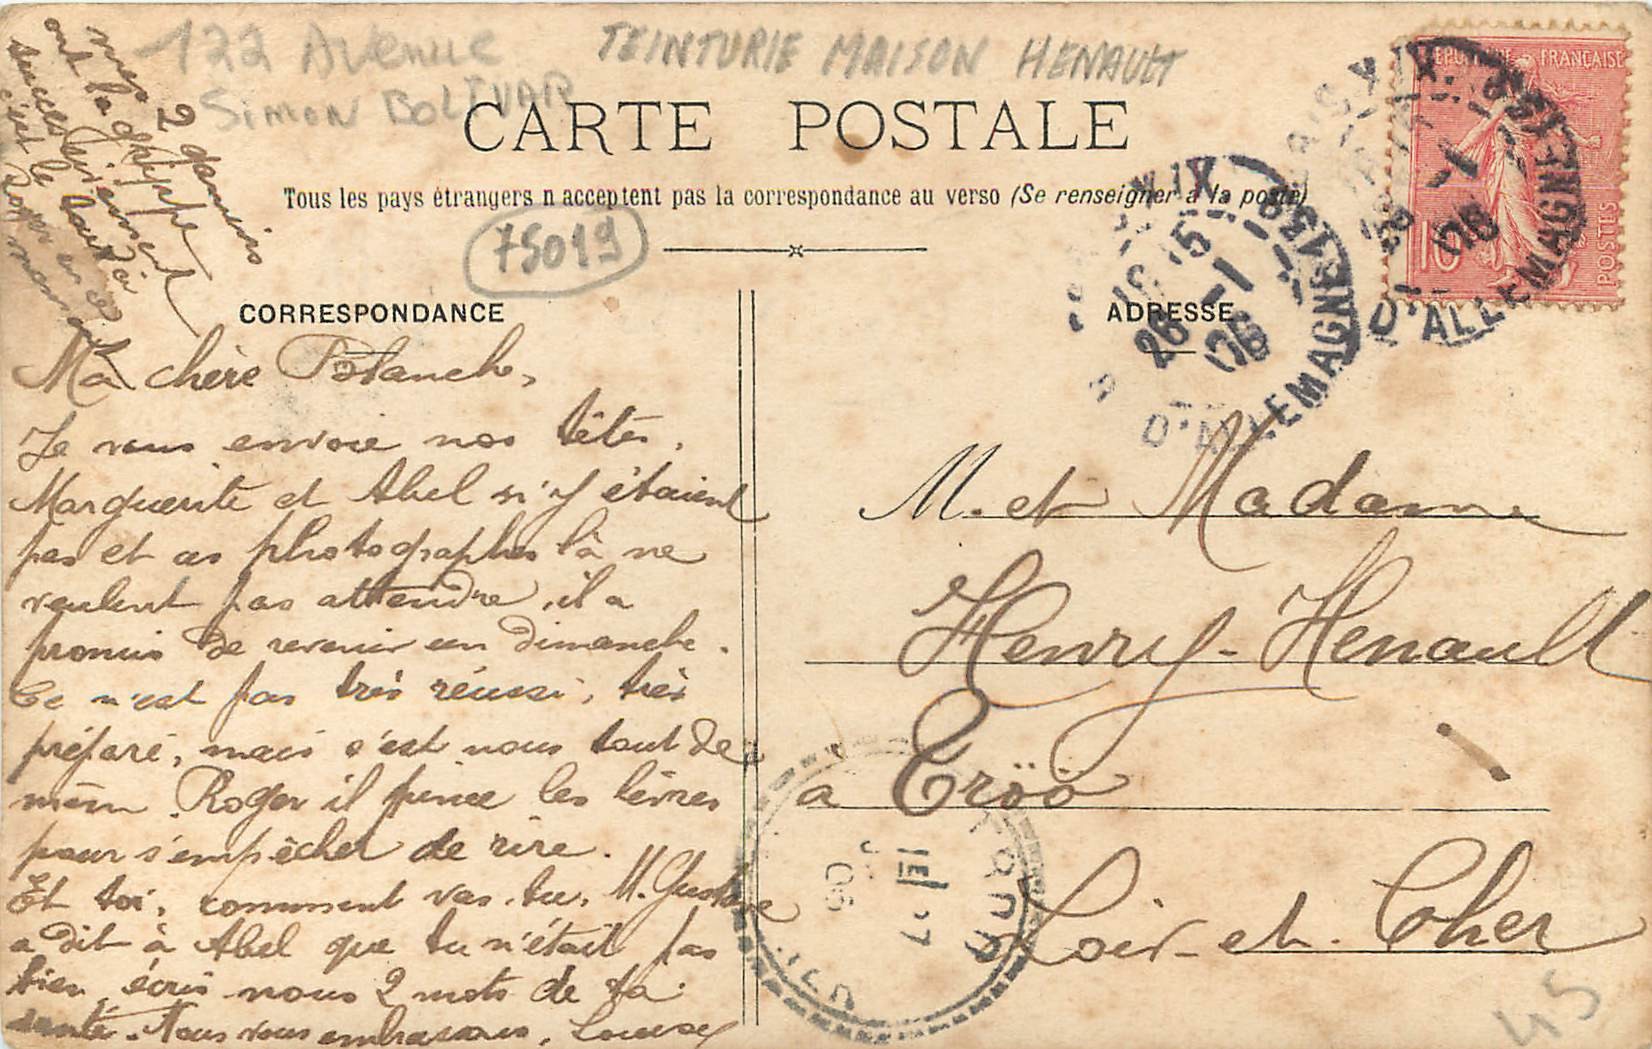 122 Avenue
Simon BOLIVAR
TEINTURIE MAISON HENAULT
CARTE POSTALE
Tous les pays étrangers n acceptent pas la correspondance au verso (Se renseigner à la poste)
75019
CORRESPONDANCE
ADRESSE
mes 2 gamins
ont la grippe
c'est le
Roger en ce
moment
Ma chère Blanche,
Je vous envoie nos têtes,
Marguerite et Abel n'y étaient
pas et ces photographes là ne
veulent pas attendre, il a
promis de revenir un dimanche.
Ce n'est pas très réussi, très
préparé, mais c'est nous tout de
mêm. Roger il pince les lèvres
pour s'empêcher de rire.
Et toi, comment vas-tu, M. Gustave
a dit à Abel que tu n'étais pas
bien, écris nous 2 mots de ta
santé. Nous vous embrassons, Louise
M. et Madame
Henry-Henault
a Tröö
Loir-et-Cher
RÉPUBLIQUE FRANÇAISE
POSTES
10
PARIS XIX
15
26 -1
06
R. D'ALLEMAGNE 139
PARIS XIX
26 -1
06
D'ALLEMAGNE 139
TROO
27
JANV
06
45